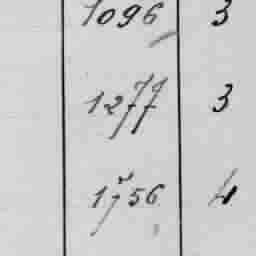 1096 3
1277 3
1756 4